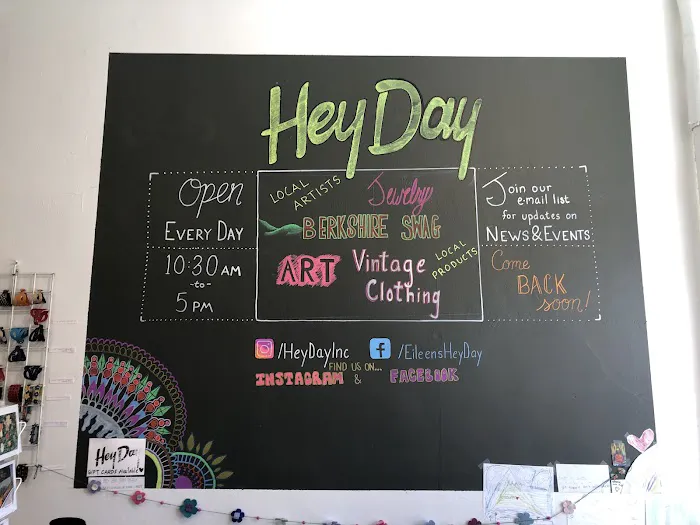 Hey Day
Open
EVERY DAY
10:30 AM
-to-
5 PM
LOCAL
ARTISTS
Jewelry
BERKSHIRE SWAG
ART
Vintage
Clothing
LOCAL
PRODUCTS
Join our
e-mail list
for updates on
NEWS & EVENTS
Come
BACK
soon!
/HeyDayInc
/EileensHeyDay
FIND US ON...
INSTAGRAM & FACEBOOK
Hey Day
GIFT CARDS Available